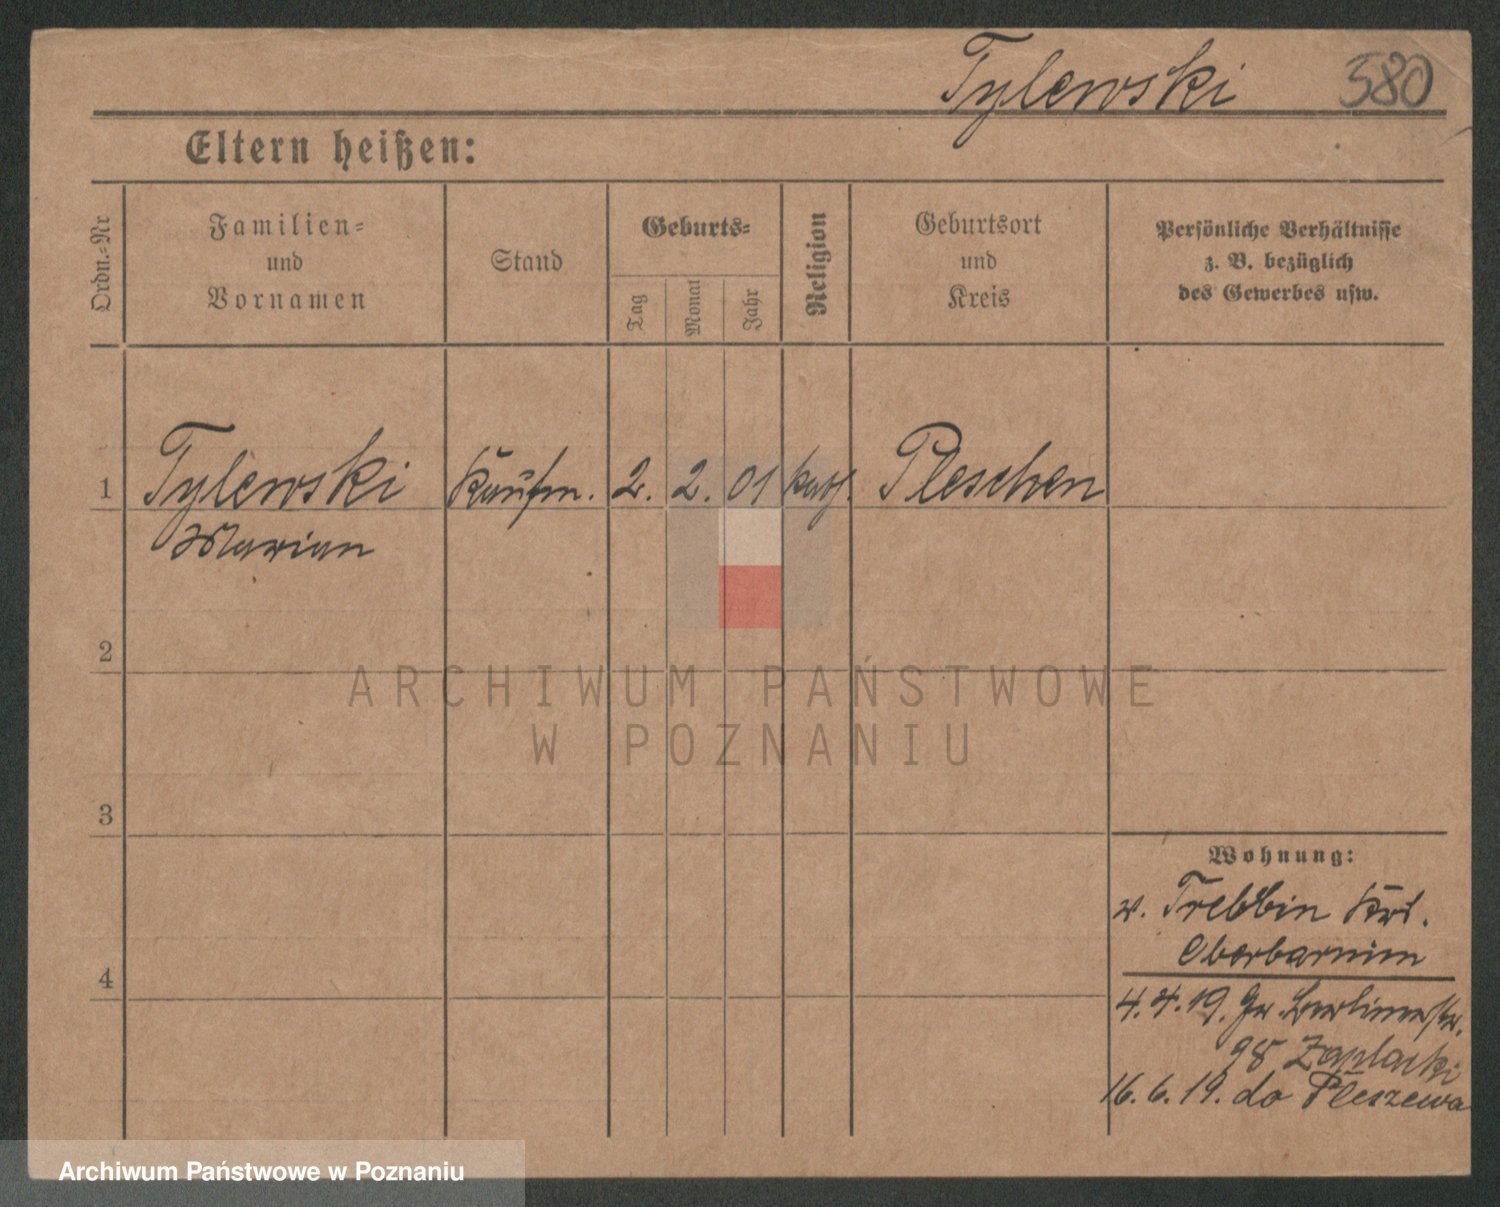 Tylewski 580
Eltern heißen:
Ordn.-Nr
Familien-
und
Vornamen
Stand
Geburts-
Tag
Monat
Jahr
Religion
Geburtsort
und
Kreis
Persönliche Verhältnisse
z. B. bezüglich
des Gewerbes usw.
1 Tylewski Kaufm. 2. 2. 01 kath. Pleschen
Marian
2
ARCHIWUM PAŃSTWOWE
W POZNANIU
3
Wohnung:
v. Trebbin Krs.
Oberbarnim
4
4.4.19. Gr. Berlinerstr.
98 Zaplacki
16.6.19. do Pleszewa
Archiwum Państwowe w Poznaniu